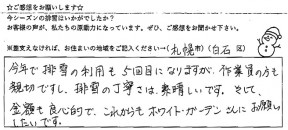 ☆ご感想をお願いします☆
今シーズンの排雪はいかがでしたか?
お客様の声が、私たちの原動力になっています。ぜひ、ご感想をお聞かせ下さい。
※差支えなければ、お住まいの地域をご記入ください→(札幌市)(白石 区)
今年で排雪の利用も5回目になりますが、作業員の方も
親切ですし、排雪の丁寧さは、素晴しいです。そして、
金額も良心的で、これからもホワイト・ガーデンさんにお願い
したいです。